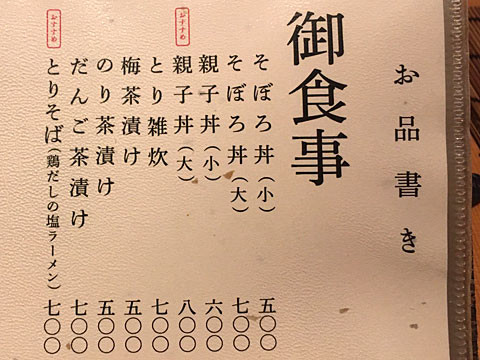 お品書き
御食事
そぼろ丼(小) 五〇〇
そぼろ丼(大) 七〇〇
親子丼(小) 六〇〇
おすすめ
親子丼(大) 八〇〇
とり雑炊 七〇〇
梅茶漬け 五〇〇
のり茶漬け 五〇〇
だんご茶漬け 七〇〇
おすすめ
とりそば(鶏だしの塩ラーメン) 七〇〇